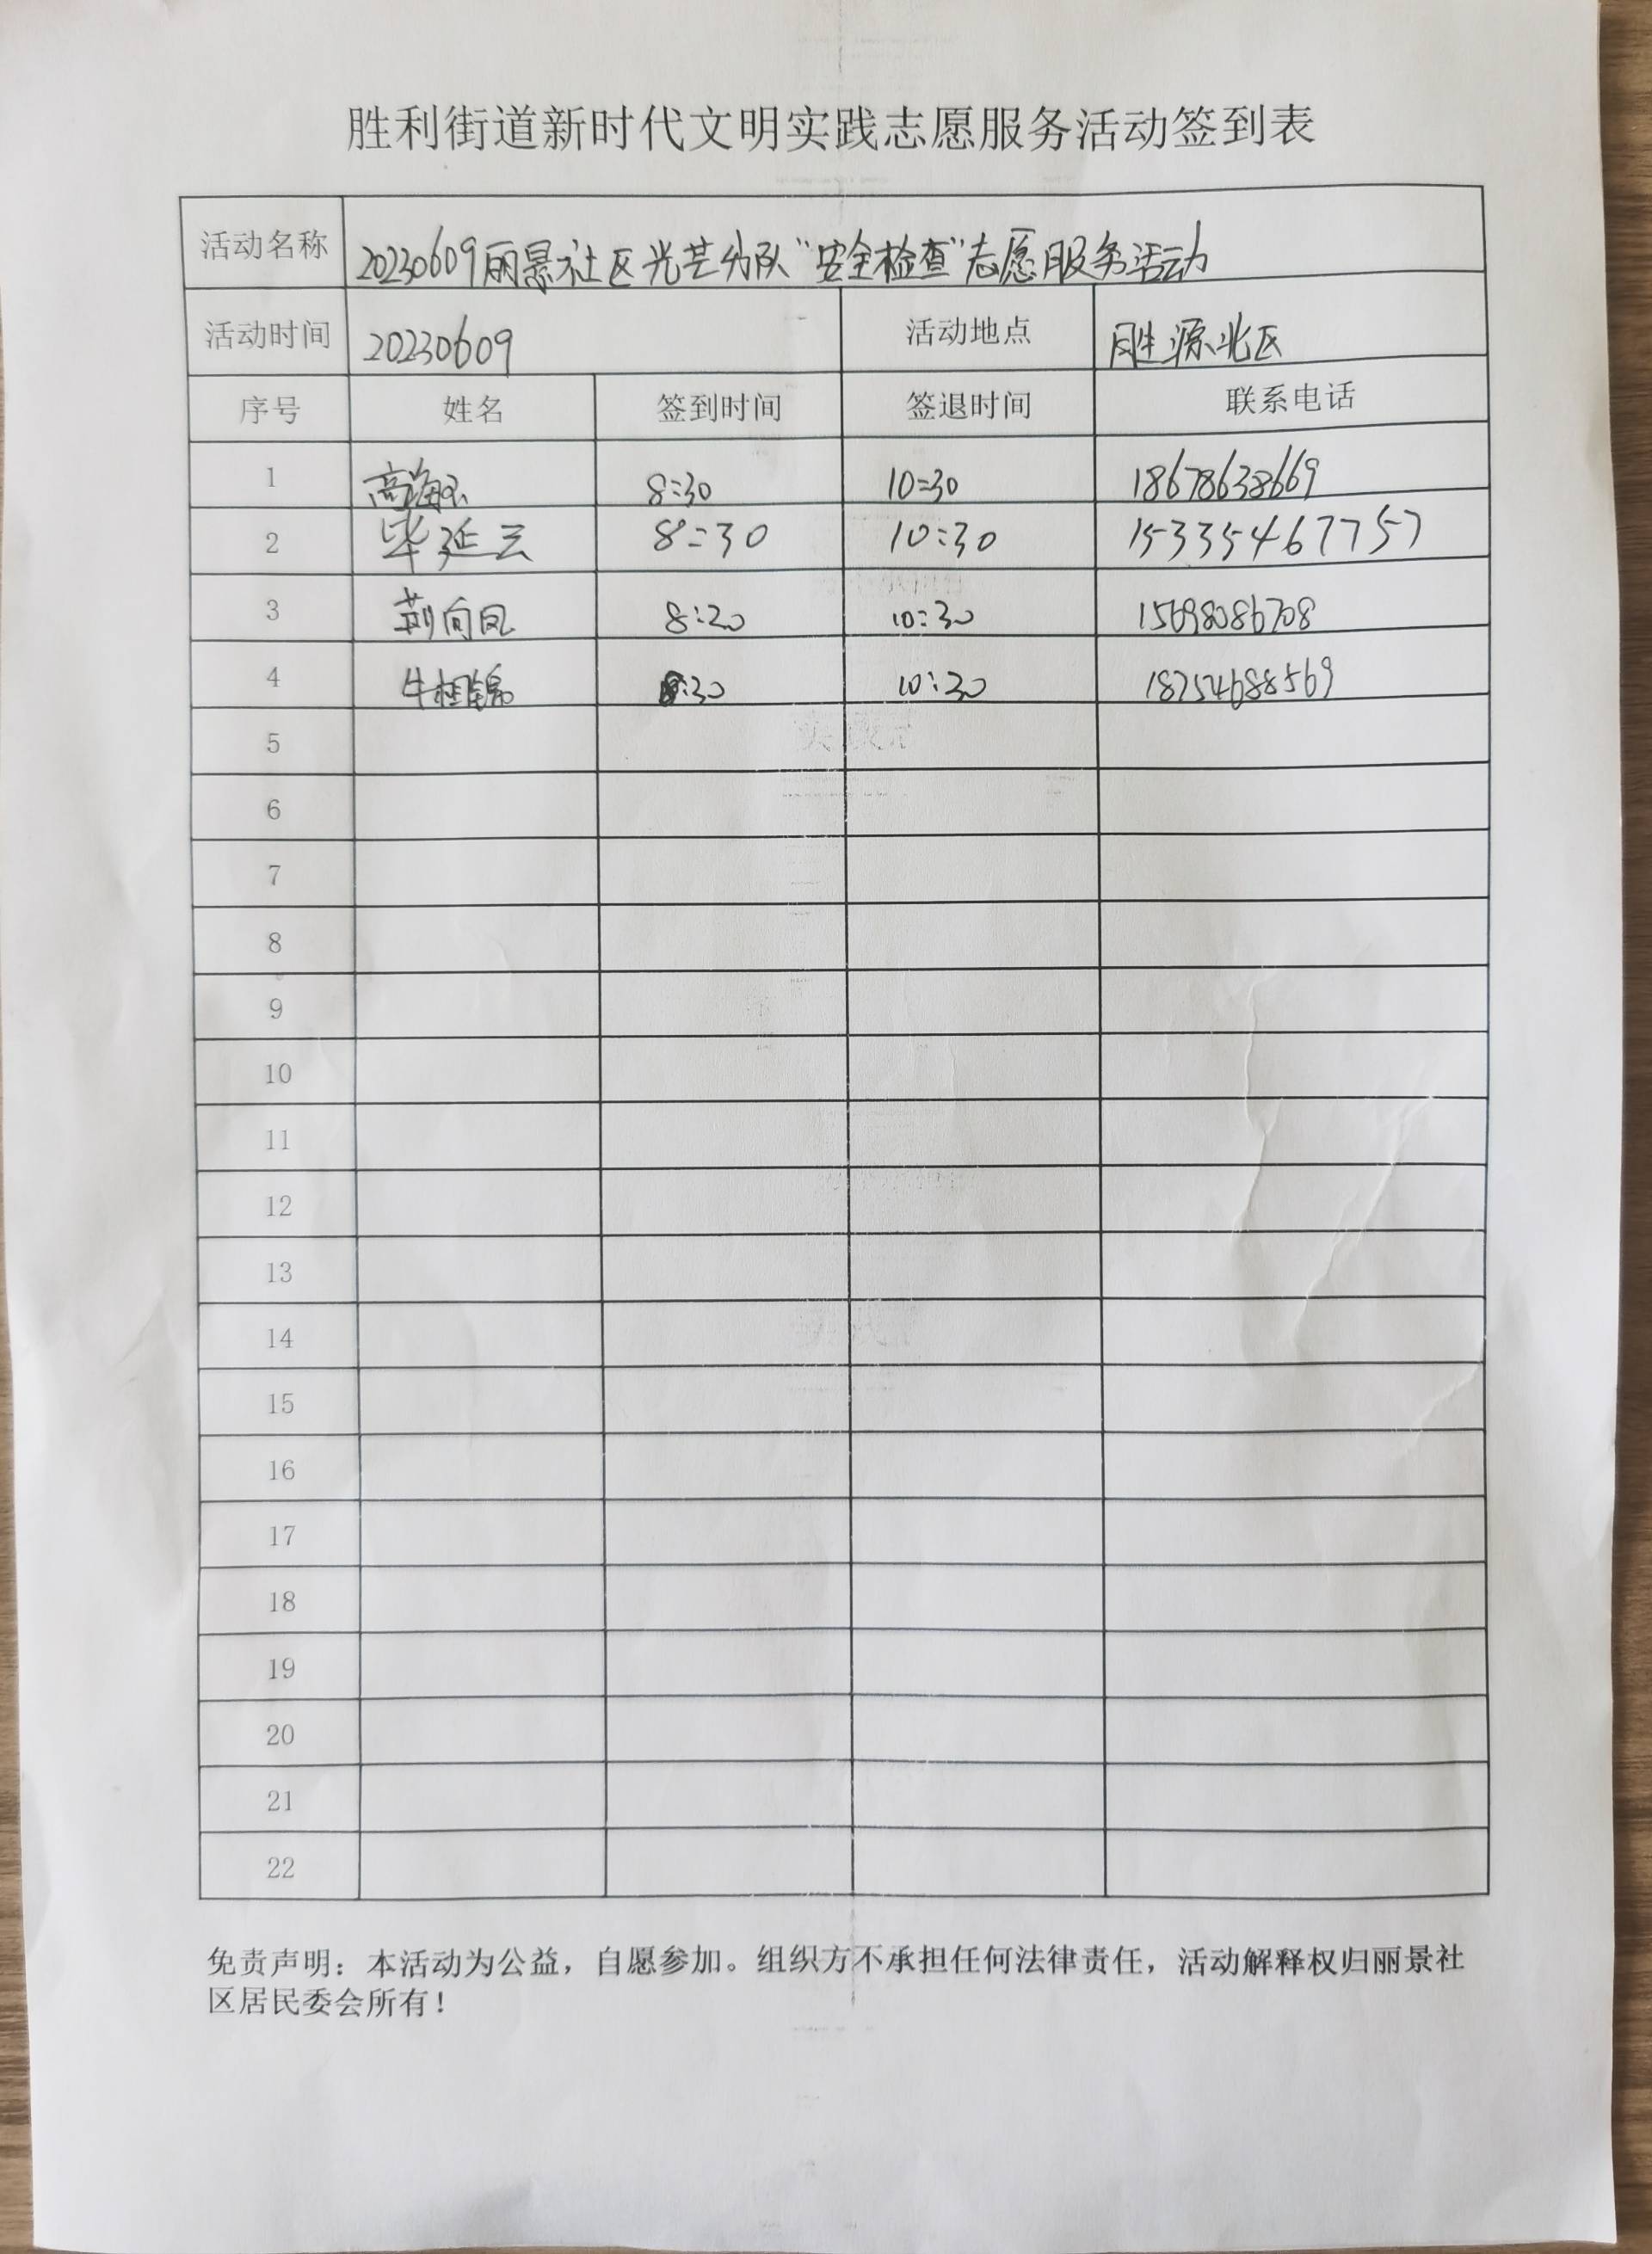 胜利街道新时代文明实践志愿服务活动签到表
活动名称 20230609丽景社区光芒分队“安全检查”志愿服务活动
活动时间 20230609 活动地点 胜源北区
序号 姓名 签到时间 签退时间 联系电话
1 高海 8:30 10:30 18678638669
2 毕延云 8:30 10:30 15335467757
3 荆向凤 8:30 10:30 15698086708
4 牛相锦 8:30 10:30 18754688569
5
6
7
8
9
10
11
12
13
14
15
16
17
18
19
20
21
22
免责声明：本活动为公益，自愿参加。组织方不承担任何法律责任，活动解释权归丽景社
区居民委会所有！